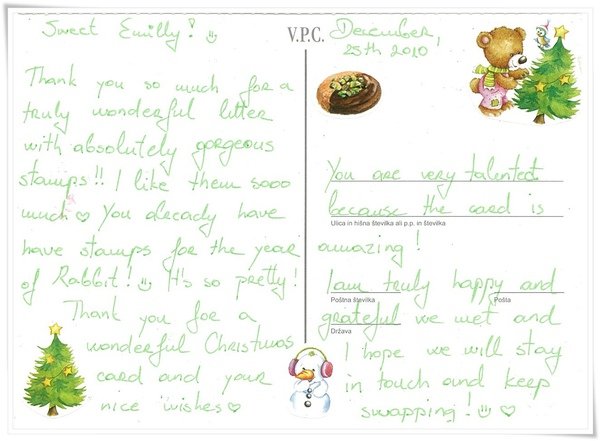 Sweet Emilly! ☺
Thank you so much for a
truly wonderful letter
with absolutely gorgeous
stamps!! I like them sooo
much ♡ You already have
have stamps for the year
of Rabbit! ☺ It's so pretty!
Thank you for a
wonderful Christmas
card and your
nice wishes ♡
V.P.C.
December,
25th 2010
You are very talented
because the card is
Ulica in hišna številka ali p.p. in številka
amazing!
I am truly happy and
Poštna številka Pošta
grateful we met and
Država
I hope we will stay
in touch and keep
swapping! ☺ ♡